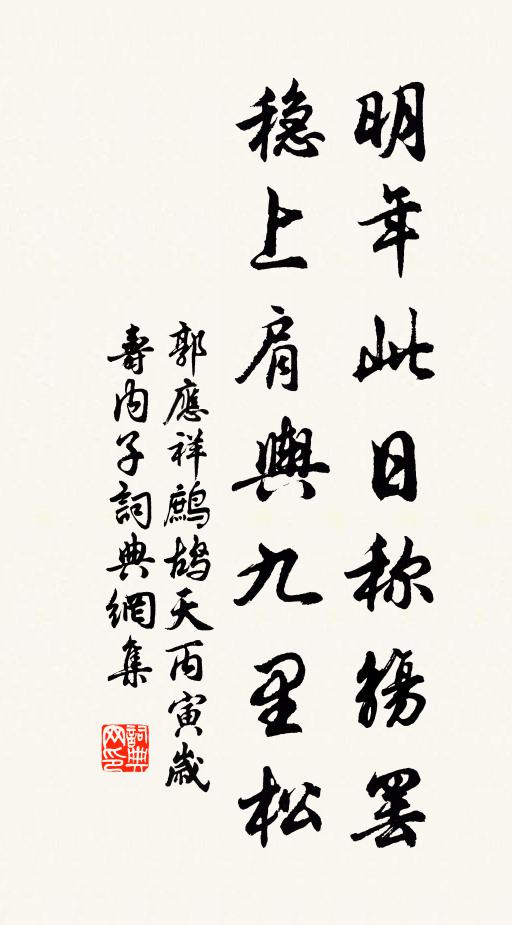 明年此日称觴罢
稳上肩輿九里松
郭應祥鷓鴣天丙寅歲
壽内子詞典網集
詞典网印